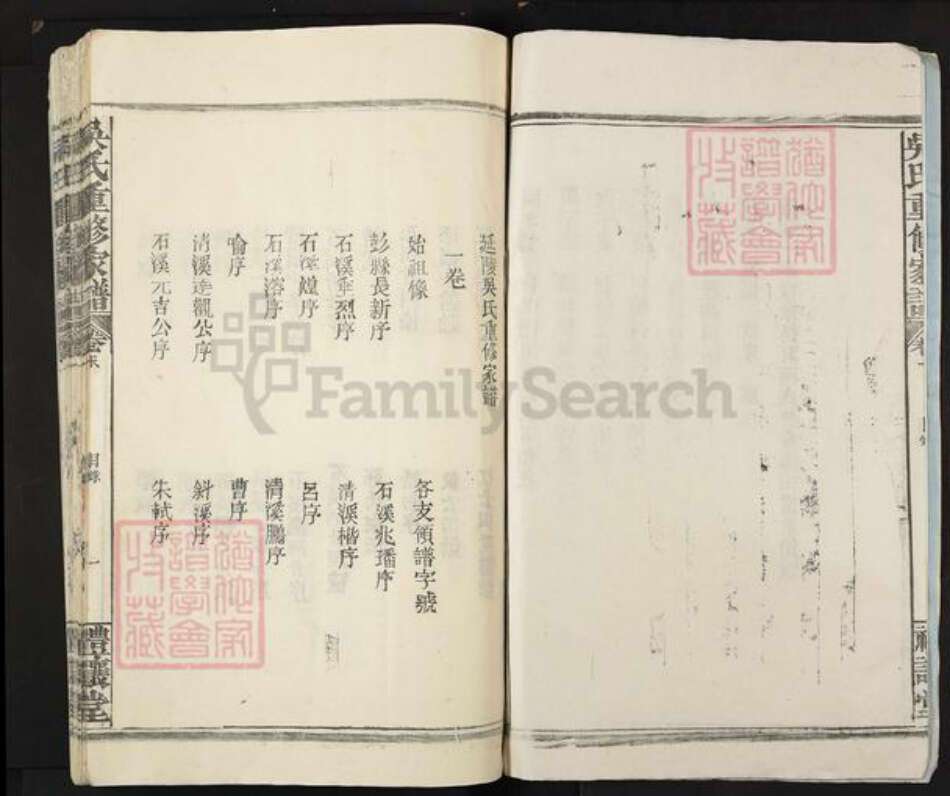 延陵吳氏重修家譜
一卷
始祖像
各支領譜字號
彭縣長新序
石溪兆璠序
石溪垂烈序
清溪楷序
石溪煌序
呂序
石溪溶序
清溪鵬序
喻序
曹序
清溪達觀公序
斜溪序
石溪元吉公序
朱軾序
吳氏重修家譜
卷末
目錄
一
禮讓堂
吳氏重修家譜
FamilySearch